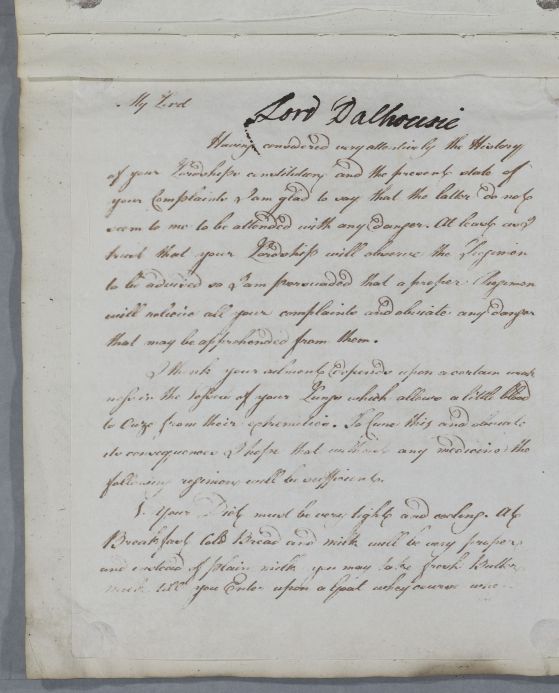 My Lord
Lord Dalhousie
Having considered very attentively the History
of your Lordships constitution and the present state of
your Complaints I am glad to say that the latter do not
seem to me to be attended with any danger. At least as I
trust that your Lordship will observe the Regimen
to be advised so I am perswaded that a proper Regimen
will relieve all your complaints and obviate any danger
that may be apprehended from them.
I think your ailments depend upon a certain weak
ness in the of your Lungs which allows a little blood
to Ouze from their extremities. To Cure this and obviate
its consequences I hope that without any medicine the
following regimen will be sufficient.
1. Your Diet must be very light and cooling. At
Breakfast Cold Bread and milk will be very proper
and instead of plain milk you may take fresh Butter
milk till you Enter upon a Goat whey course